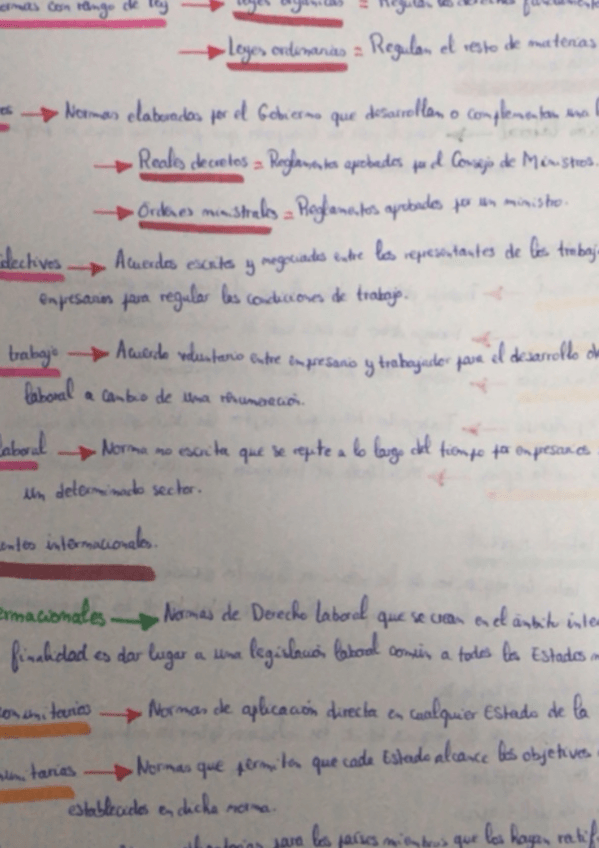 ormas con rango de ley → leyes orgánicas = Regulan los derechos fundamente
→ Leyes ordinarias = Regulan el resto de materias
os → Normas elaboradas por el Gobierno que desarrollan o complementan una l
→ Reales decretos = Reglamentos aprobados por el Consejo de Ministros.
→ Órdenes ministrales = Reglamentos aprobados por un ministro.
olectivos → Acuerdos escritos y negociados entre los representantes de los trabaj
empresarios para regular las condiciones de trabajo.
trabajo → Acuerdo voluntario entre empresario y trabajador para el desarrollo de
laboral a cambio de una renumeración.
laboral → Norma no escrita que se repite a lo largo del tiempo por empresarios
un determinado sector.
entes internacionales.
ernacionales → Normas de Derecho laboral que se crean en el ámbito inte
finalidad es dar lugar a una legislación laboral común a todos los Estados m
comunitarios → Normas de aplicación directa en cualquier Estado de la
unitarias → Normas que permiten que cada Estado alcance los objetivos
establecidos en dicha norma.
para los países mientras que los hayan ratif